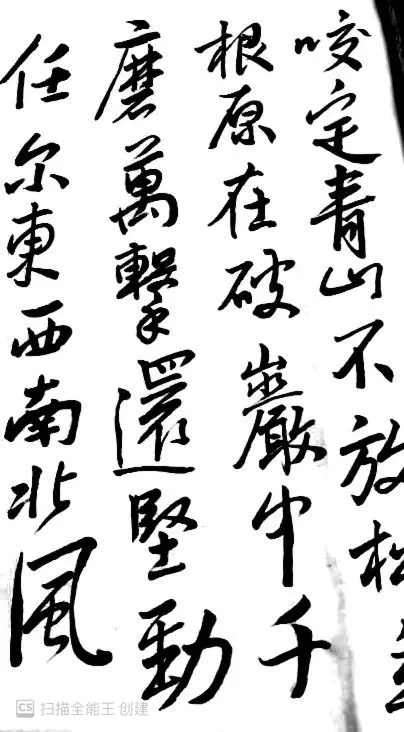 咬定青山不放松
根原在破巖中千
磨萬擊還堅勁
任尔東西南北風
CS 扫描全能王 创建